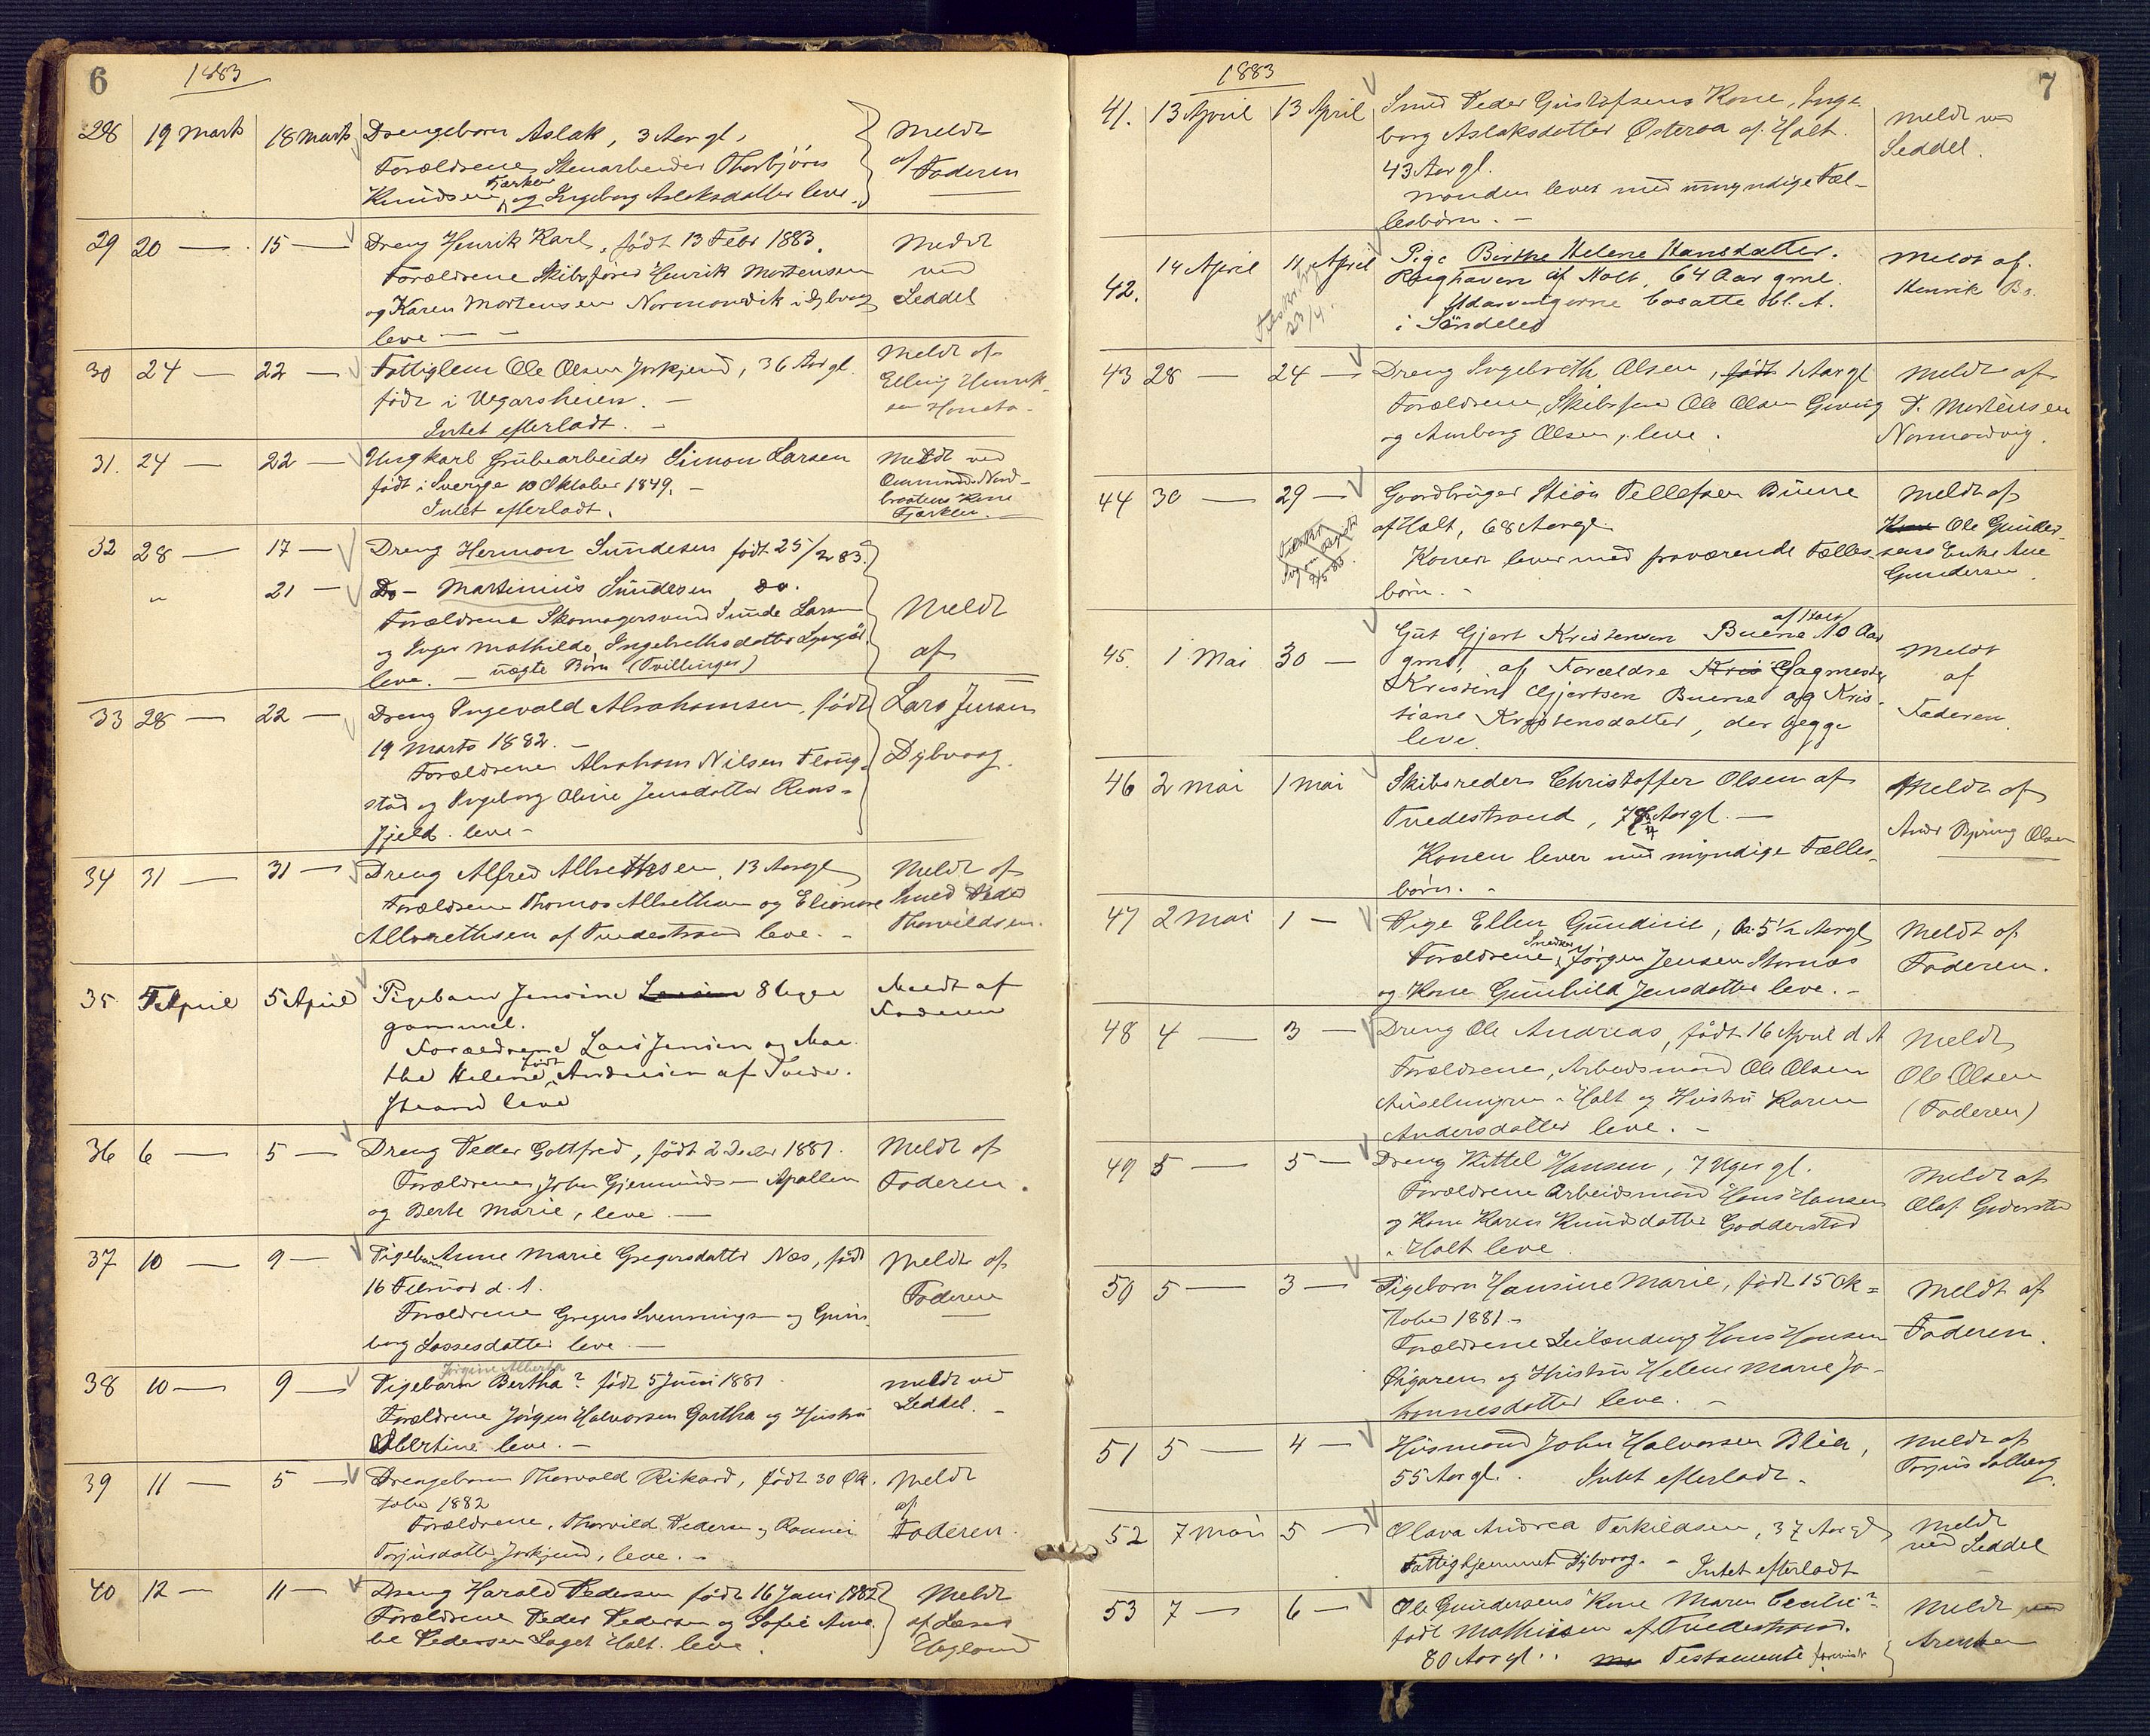 6
1883
28 19 Marts 18 Marts Drengebarn Aslak, 3 Aar gl. Meldt
Forældrene Stenarbeider Thorbjörn af Faderen
Knudsen Fjærken og Ingeborg Aslaksdatter leve.
29 20 — 15 — Dreng Henrik Karl, født 13 Febr 1883. Meldt
Forældrene Skibsfører Henrik Mortensen ved
og Karen Mortensen Normandvik i Dybvaag Seddel
leve —
30 24 — 22 — Fattiglem Ole Olsen Joskjend, 36 Aar gl. Meldt af
født i Vegarsheien. — Elling Henrik-
Intet efterladt. —
31. 24 — 22 — Ungkarl Grubearbeider Simon Larsen Meldt ved
født i Sverige 10 Oktober 1849. —
Intet efterladt. Kone
Fjærken. —
32 28 — 17 — Dreng Herman Sundesen født 25/2 83.
„ 21 — Do — Martinius Sundesen do.
Forældrene Skomagersvend Sunde Larsen Meldt
og Inger Mathilde Ingebrethsdatter af
leve. — uægte Børn (Tvillinger)
33 28 — 22 — Dreng Ingevald Abrahamsen, født Lars Jensen
19 Marts 1882. — Dybvaag.
Forældrene Abraham Nilsen Flaug-
stad og Ingeborg Oline Jensdatter Rens-
fjeld. leve —
34 31 — 31 — Dreng Alfred Albrethsen, 13 Aar gl Meldt af
Forældrene Thomas Albrethsen og Elionore Smed Peder
Albrethsen af Tvedestrand leve. — Thorvildsen.
35 5 April 5 April Pigebarn Jensine 8 Uger Meldt af
gammel. Faderen
Forældrene Lars Jensen og Mar-
the Helene født Andersen af Tvede-
strand leve
36 6 — 5 — Dreng Peder Gottfred, født 2 Decbr 1881. Meldt af
Forældrene John Gjermundsen Apallen Faderen.
og Berte Marie, leve —
37 10 — 9 — Pigebarn Anne Marie Gregersdatter Næs, født Meldt af
16 Februar d. A. Faderen
Forældrene Gregers Svennings— og Gun-
borg Lassesdatter leve —
Jørgine Alberta
38 10 — 9 — Pigebarn Bertha? født 5 Juni 1881 meldt ved
Forældrene Jörgen Halvorsen Gartha og Hustru Seddel. —
Albertine leve. —
39 11 — 5 — Drengebarn Thorvald Rikard, født 30 Ok- Meldt
tober 1882 af
Forældrene, Thorvild Pedersen og Faderen.
Torjusdatter Joskjend, leve. —
40 12 — 11 — Dreng Harald Pedersen født 16 Juni 1882 Meldt
Forældrene Peder Pedersen og Sofie Ama- af
lie Pedersen Laget Holt. leve.
7
1883
41. 13 April 13 April Smed Peder Gustafsens Kone, Inge-
borg Aslaksdatter Østeraa af Holt. meldt ved
43 Aar gl. Seddel.
Manden lever med umyndige Fæl-
lesbörn. —
42. 14 April 11 April Pige Birthe Helene Hansdatter. Meldt af
af Holt, 64 Aar gml. Henrik Bo.
Udarvingerne bosatte bl. A.
i Söndeled
23/4.
43 28 — 24 — Dreng Ingebreth Olsen, født 1 Aar gl Meldt af
Forældrene, Skibsfører Ole Olsen Geving P. Mortensen
og Amborg Olsen, leve. Normandvig.
44 30 — 29 — Gaardbruger Stian Tellefsen Buene Meldt af
af Holt, 68 Aar gl. Ole Gunder-
Konen lever med fraværende Fælles- sens Enke Ane
börn. — Gundersen.
2/5 83.
45. 1 Mai 30 — Gut Gjert Kristensen Buene af Holt 10 Aar Meldt
gml, af Forældre Kris Sagmester af
Kristen Gjertsen Buene og Kris- Faderen.
tiane Kristensdatter, der begge
leve.
46 2 Mai 1 Mai Skibsreder Christoffer Olsen af Meldt af
Tvedestrand, Aar gl. — Olsen
Konen lever med myndige Fælles-
börn. —
47 2 Mai 1 — Pige Ellen Gundine, ca. 5½ Aar gl Meldt af
Forældrene Snedker Jörgen Jensen Stornæs Faderen.
og Kone Gunhild Jensdatter leve. —
48 4 — 3 — Dreng Ole Andreas, født 16 April d A Meldt
Forældrene, Arbeidsmand Ole Olsen Ole Olsen
i Holt og Hustru Karen (Faderen)
Andersdatter leve. —
49 5 — 5 — Dreng Kittel Hansen, 7 Uger gl. Meldt af
Forældrene Arbeidsmand Hans Hansen Olaf
og Kone Karen Knudsdatter Godderstad
i Holt leve.
50 5 — 3 — Pigebarn Hansine Marie, født 15 Ok- Meldt af
tober 1881 — Faderen.
Forældrene Leilænding Hans Hansen
og Hustru Helene Marie Jo-
hannesdatter leve. —
51 5 — 4 — Husmand John Halvorsen Blia, Meldt af
55 Aar gl. Intet efterladt. Torjus Solberg
52 7 Mai 5 — Olava Andrea Terkildsen, 37 Aar gl Meldt
Fattighjemmet Dybvaag. — Intet efterladt ved Seddel
53 7 — 6 — Ole Gundersens Kone Maren Cecilie? Meldt
født Mathisen af Tvedestrand.
80 Aar gl. Testamente forevist